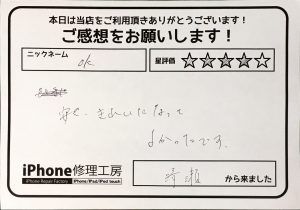 本日は当店をご利用頂きありがとうございます！
ご感想をお願いします！
ニックネーム
ok
星評価 ☆☆☆☆☆
安く、きれいになって
よかったです。
iPhone修理工房
iPhone Repair Factory iPhone/iPad/iPod touch
綾瀬 から来ました